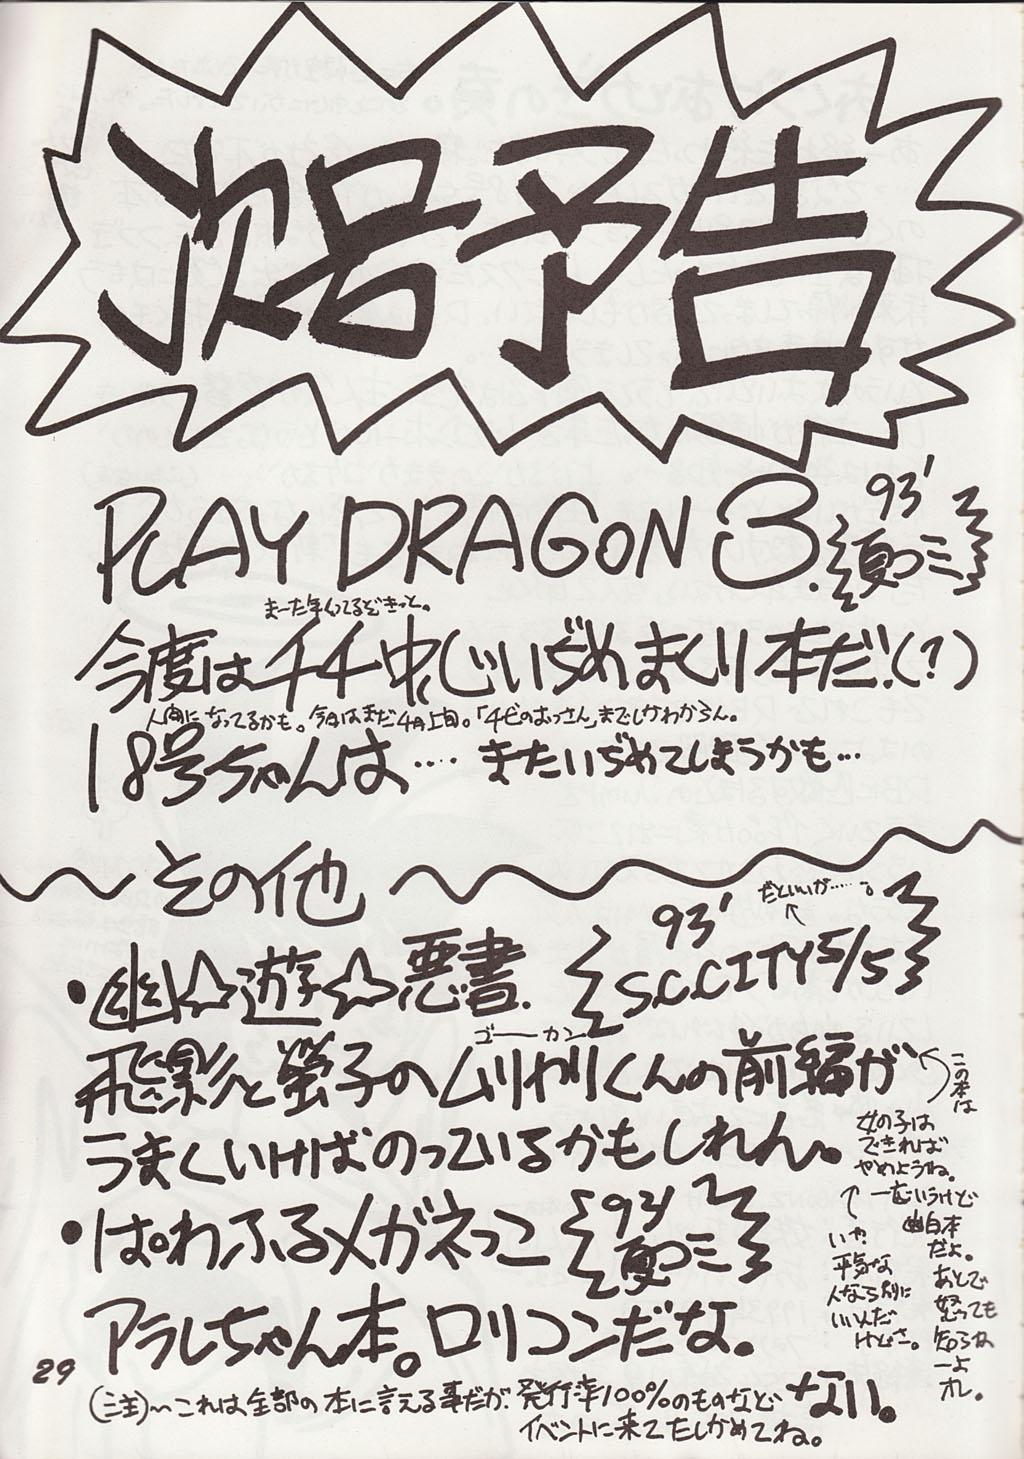 次号予告
PLAY DRAGON 3.
93'
夏コミ
まーた年くってるぞきっと。
今度はチチ中心いぢめまくり本だ!(?)
人間になってるかも。今日はまだ4月上旬。「4代のおっさん」までしかわからん。
18号ちゃんは‥‥またいぢめてしまうかも…
その他
•幽☆遊☆悪書.
93'
S.C.CITY5/5
だといいが……。
ゴーカン
飛影と螢子のムリヤリくんの前編が
うまくいけばのっているかもしれん。
この本は
女の子は
できれば
やめようね。
一応いうけど
幽白本
だよ。
あとで
怒っても
知らね
ーよ
オレ。
いや
平気な
人なら別に
いいんだ
けどさ。
•ぱわふるメガネっこ
93'
夏コミ
アラレちゃん本。ロリコンだな。
(注)〜これは全部の本に言える事だが、発行率100%のものなどない。
イベントに来てたしかめてね。
29